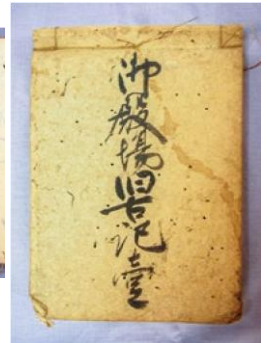 御殿場旧記壹